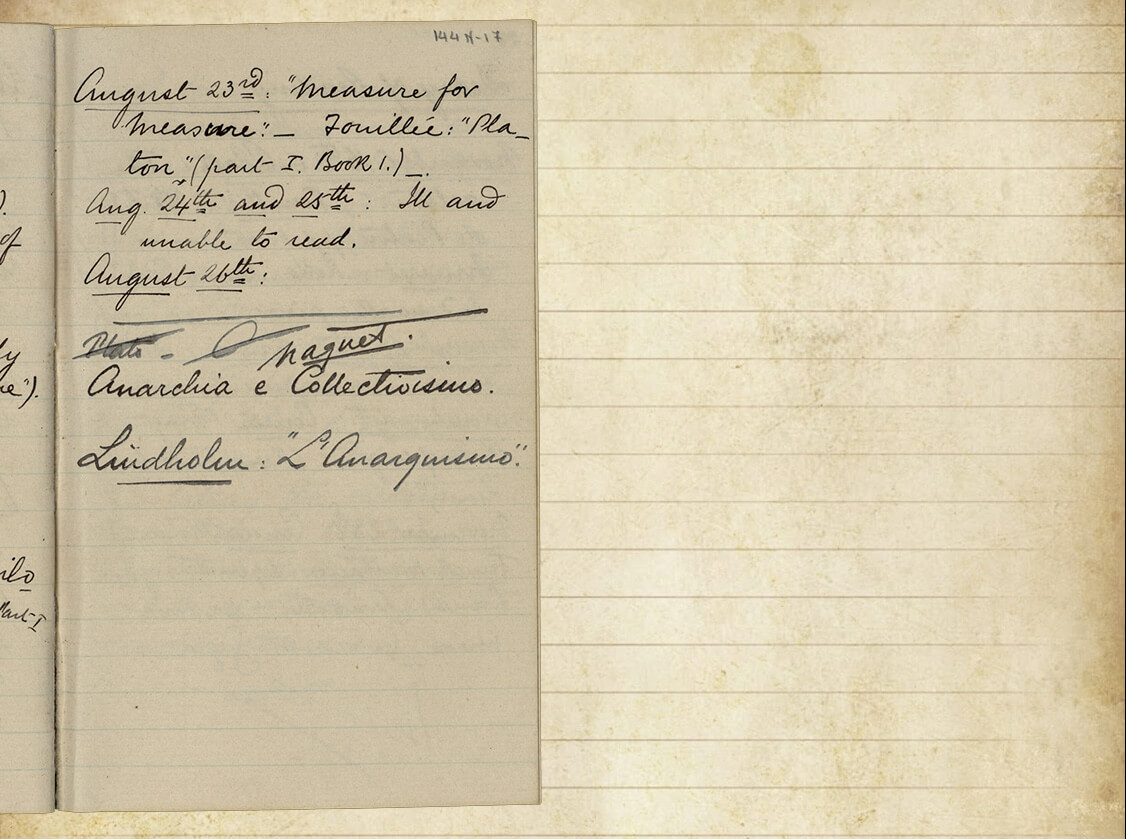 144 N-17
August 23rd: "Measure for
Measure". — Fouillée: "Pla-
ton" (part I. Book 1.) —.
Aug. 24th and 25th: Ill and
unable to read.
August 26th:
Plato - Naquet.
Anarchia e Collectivismo.
Lindholm: "L'Anarquismo".
). 
of
ly
e").
ilo
Part I